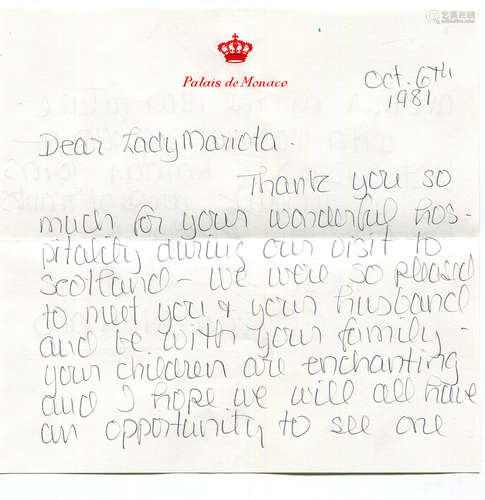 Palais de Monaco
Oct. 6th
1981
Dear Lady Mariota.
Thank you so
much for your wonderful hos-
pitality during our visit to
Scotland - we were so pleased
to meet you & your husband
and be with your family -
your children are enchanting
and I hope we will all have
an opportunity to see one